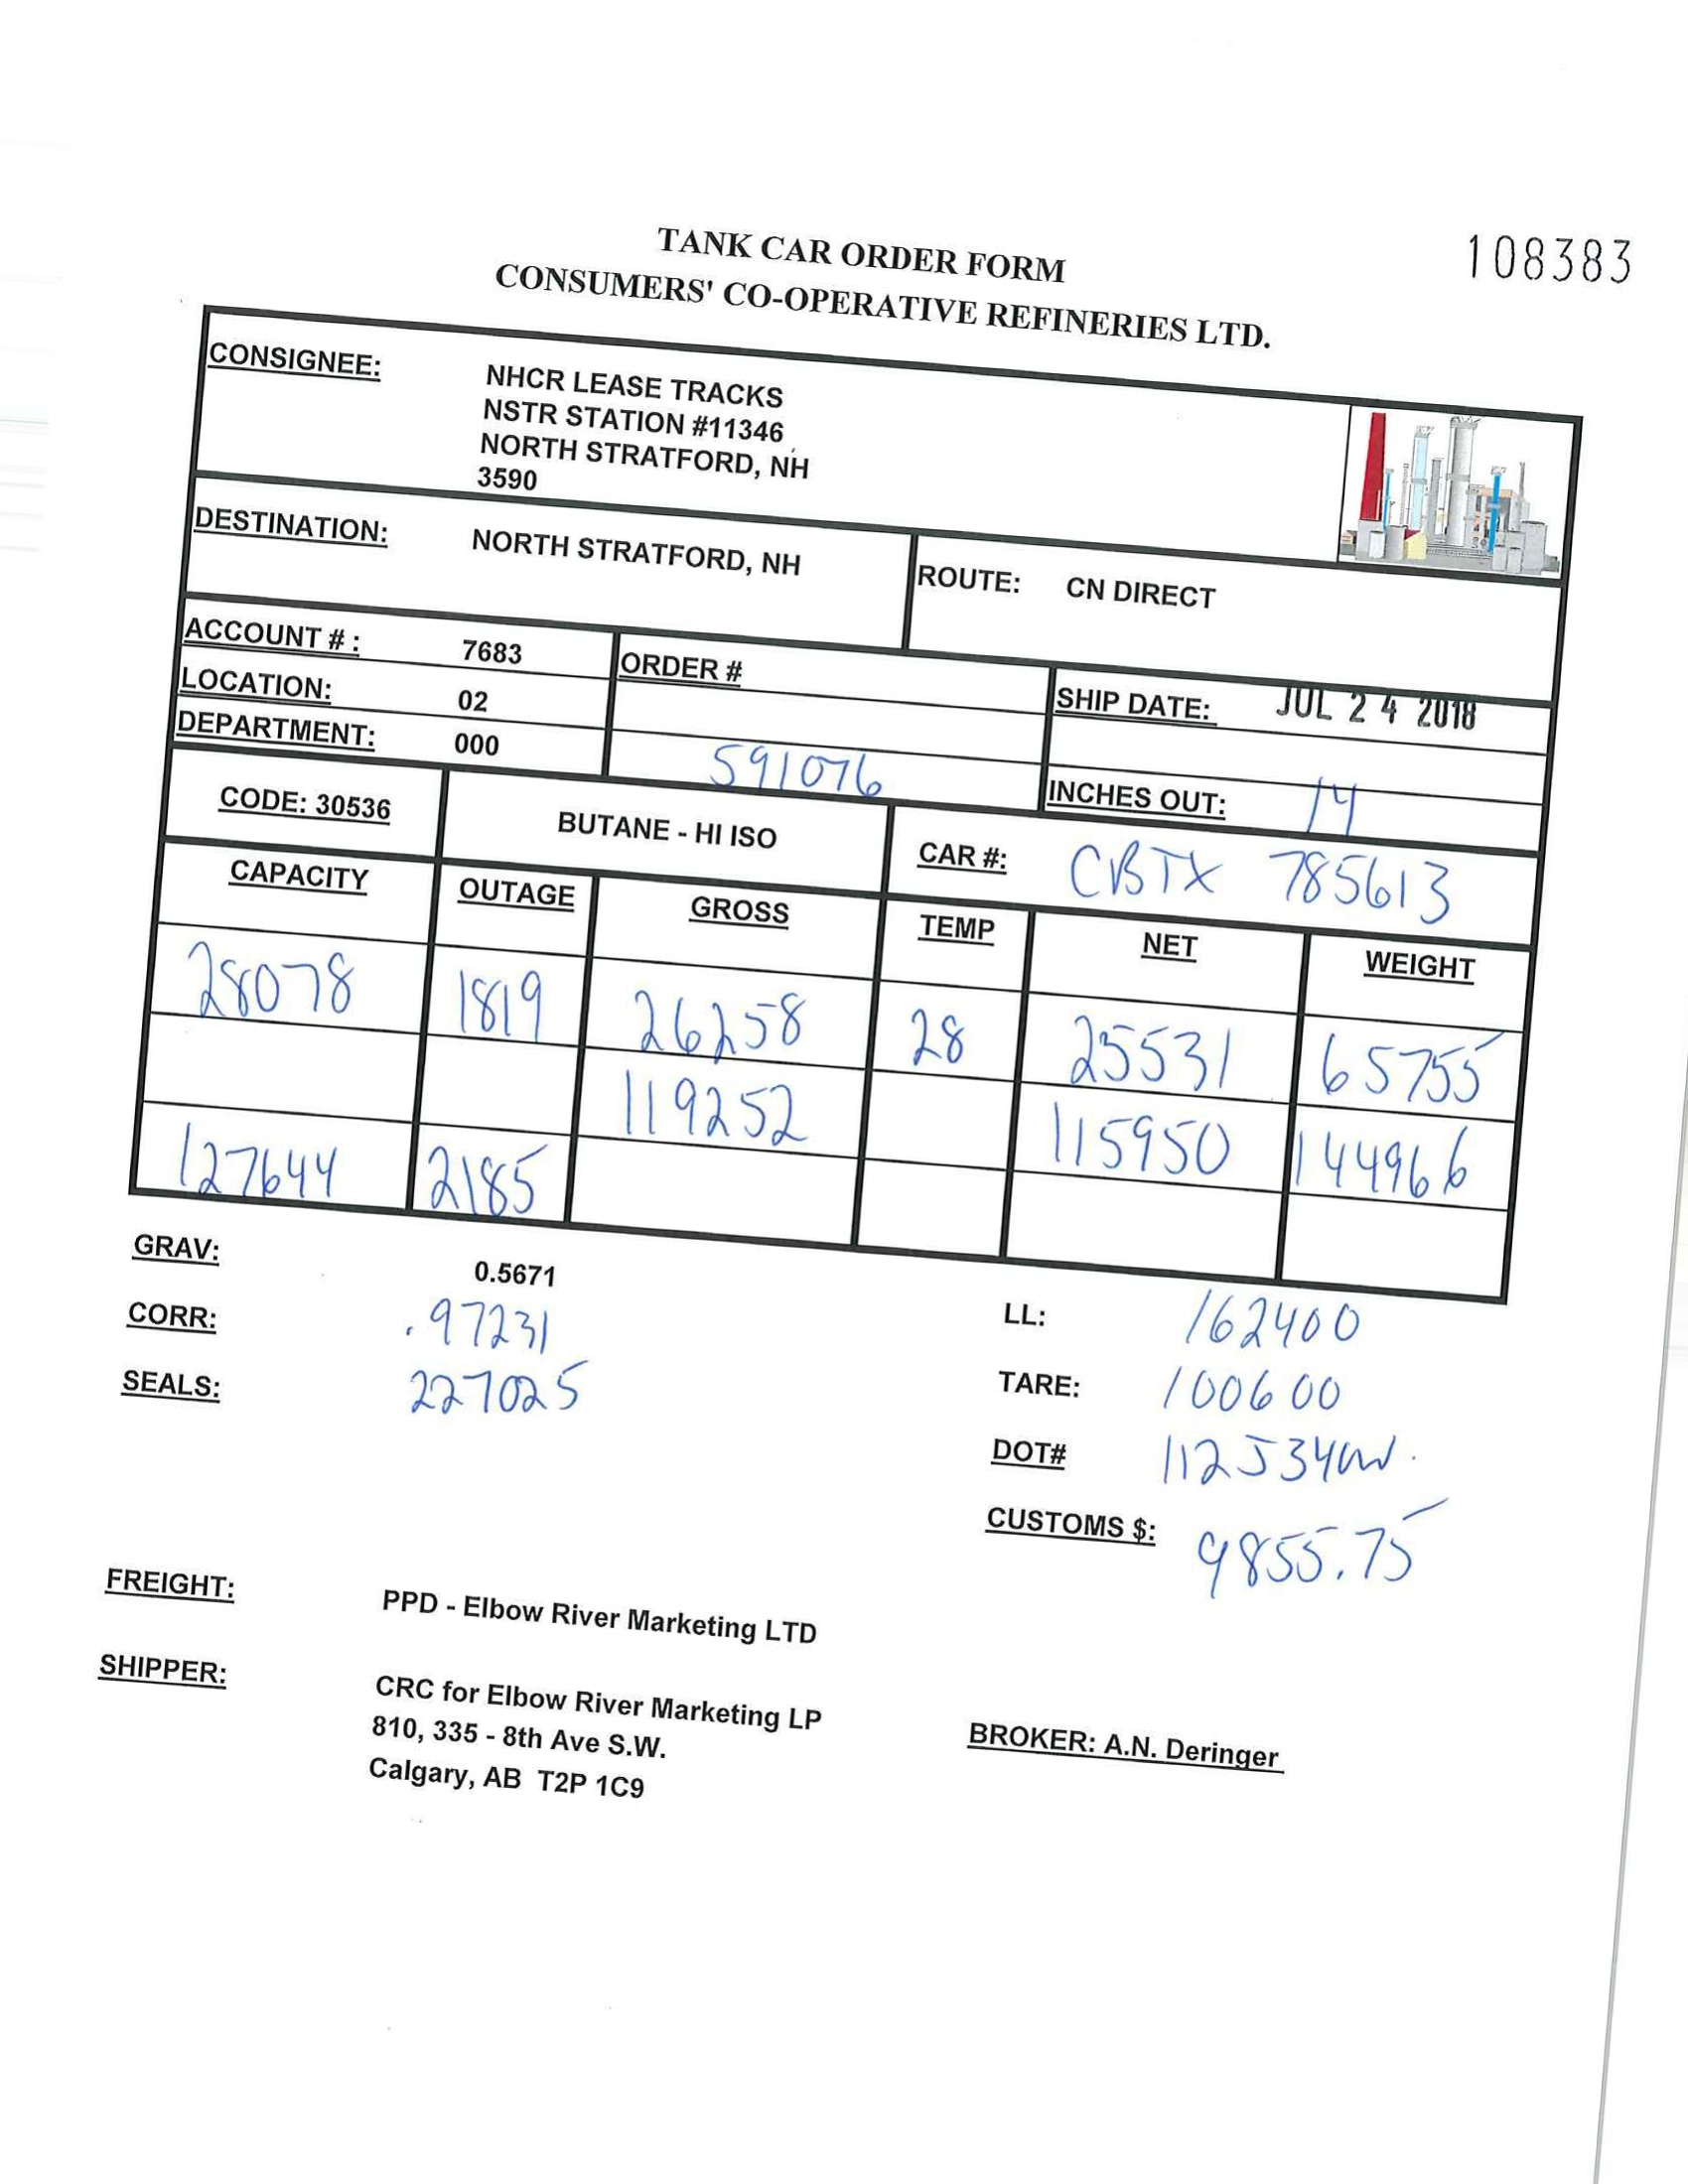 108383
TANK CAR ORDER FORM
CONSUMERS' CO-OPERATIVE REFINERIES LTD.
CONSIGNEE: NHCR LEASE TRACKS
NSTR STATION #11346
NORTH STRATFORD, NH
3590
DESTINATION: NORTH STRATFORD, NH ROUTE: CN DIRECT
ACCOUNT # : 7683 ORDER # SHIP DATE: JUL 24 2018
LOCATION: 02
DEPARTMENT: 000 591076 INCHES OUT: 14
CODE: 30536 BUTANE - HI ISO CAR #: CBTX 785613
CAPACITY OUTAGE GROSS TEMP NET WEIGHT
28078 1819 26258 28 25531 65755
119252 115950 144966
127644 2185
GRAV: 0.5671
CORR: .97231 LL: 162400
SEALS: 227025 TARE: 100600
DOT# 112J340W.
CUSTOMS $: 9855.75
FREIGHT: PPD - Elbow River Marketing LTD
SHIPPER: CRC for Elbow River Marketing LP
810, 335 - 8th Ave S.W. BROKER: A.N. Deringer
Calgary, AB T2P 1C9